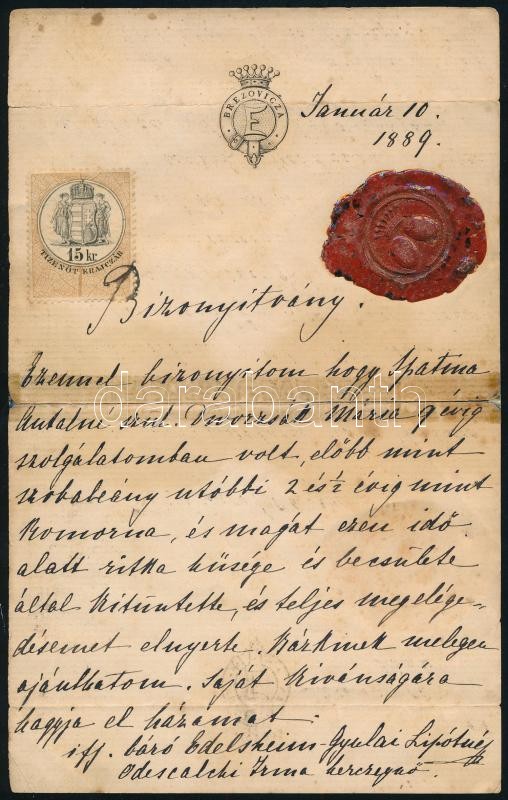 BREZOVICZA
E
Január 10.
1889.
15 kr.
TIZENÖT KRAJCZÁR
Bizonyitvány.
darabanth
Ezennel bizonyitom hogy Spatina
Antalné szül. Dworzsák Mária 9 évig
szolgálatomban volt, előbb mint
szobaleány utóbbi 2 és ½ évig mint
Komorna, és magát ezen idő
alatt ritka hűsége és becsülete
által kitüntette, és teljes megelége-
désemet elnyerte. Bárkinek melegen
ajánlhatom. Saját kivánságára
hagyja el házamat.
ifj. báró Edelsheim-Gyulai Lipótné
Odescalchi Irma herczegnő.